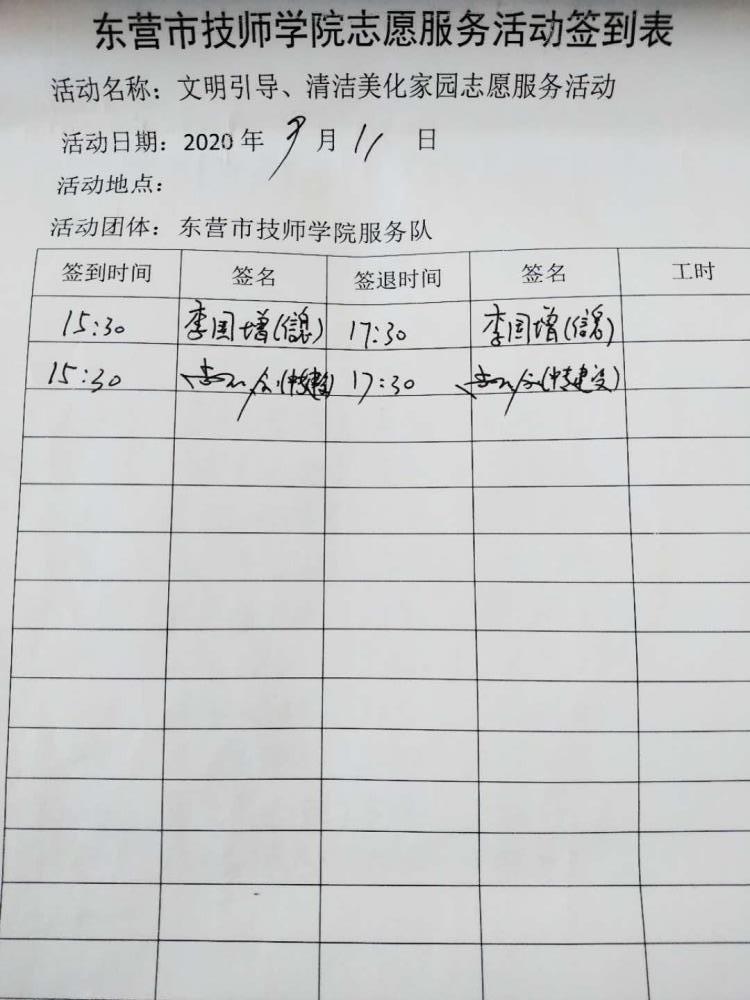 东营市技师学院志愿服务活动签到表
活动名称：文明引导、清洁美化家园志愿服务活动
活动日期：2020 年 9 月 11 日
活动地点：
活动团体：东营市技师学院服务队
签到时间 签名 签退时间 签名 工时
15:30 李国增(信息) 17:30 李国增(信息)
15:30 17:30